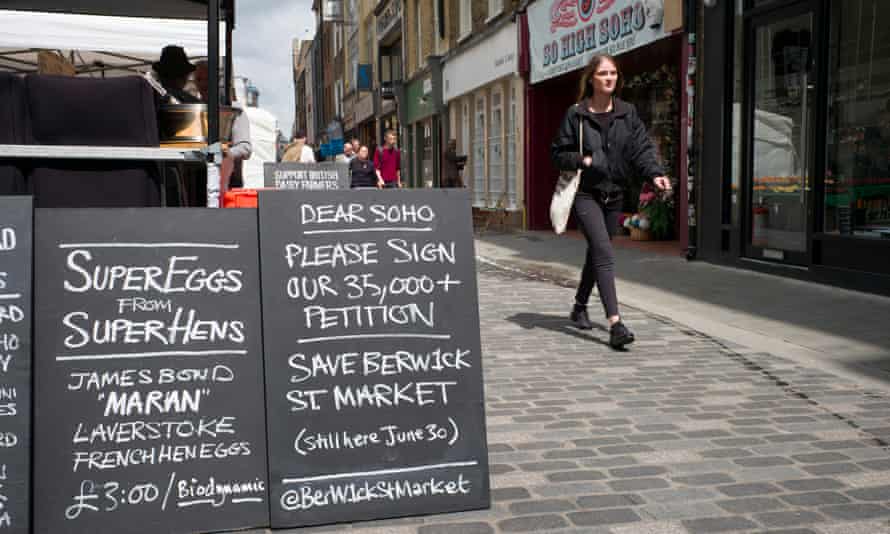 SO HIGH SOHO
SUPPORT BRITISH
DAIRY FARMERS
SUPEREGGS
FROM
SUPERHENS
JAMES BOND
"MARAN"
LAVERSTOKE
FRENCH HEN EGGS
£3:00/Biodynamic
DEAR SOHO
PLEASE SIGN
OUR 35,000+
PETITION
SAVE BERWICK
ST. MARKET
(Still here June 30)
@BerwickStMarket